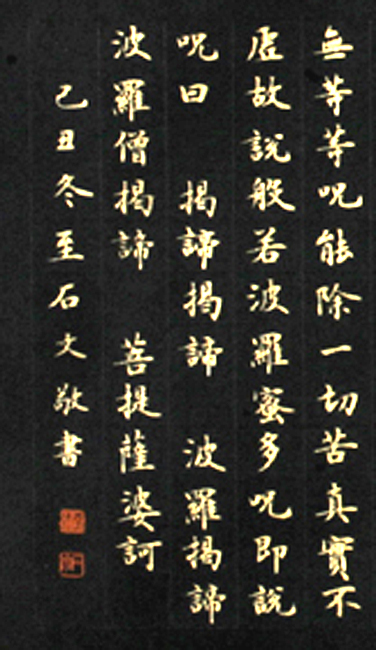 無等等呪能除一切苦真實不
虛故說般若波羅蜜多呪即說
呪曰 揭諦揭諦 波羅揭諦
波羅僧揭諦 菩提薩婆訶
己丑冬至石文敬書